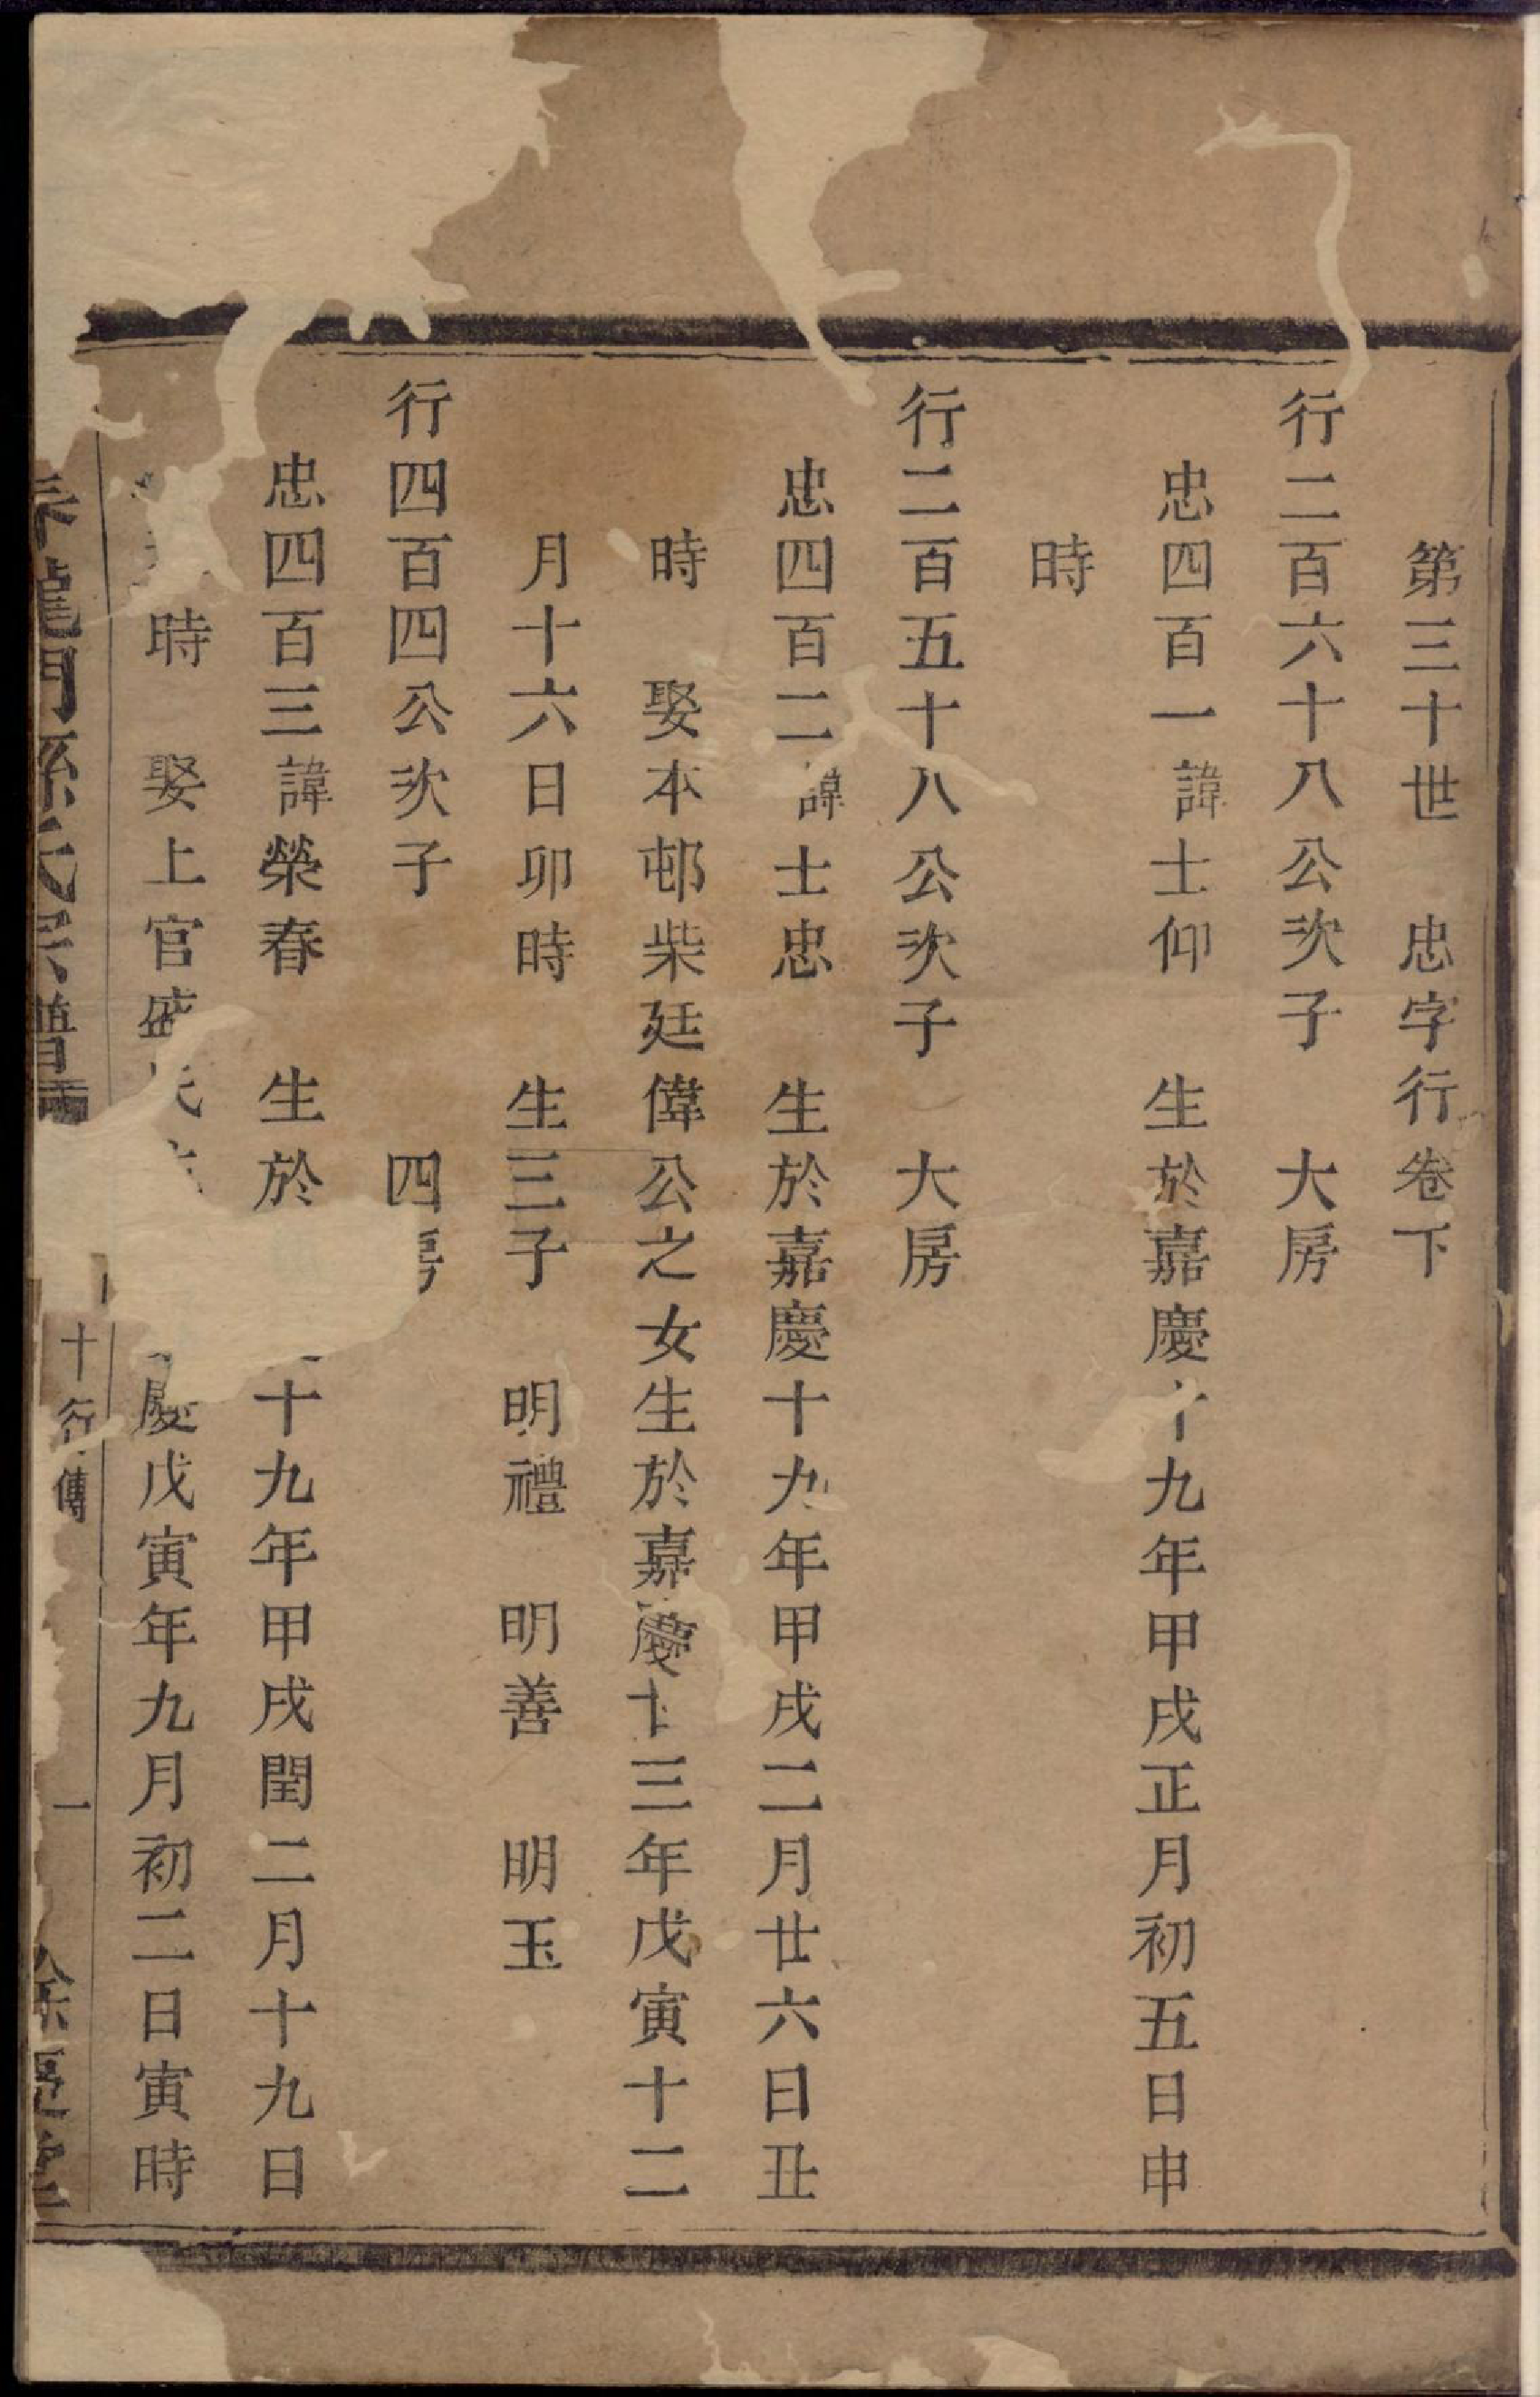 第三十世　忠字行卷下
行二百六十八公次子　大房
忠四百一諱士仰　生於嘉慶十九年甲戌正月初五日申
時
行二百五十八公次子　大房
忠四百二諱士忠　生於嘉慶十九年甲戌二月廿六日丑
時　娶本邨柴廷偉公之女生於嘉慶十三年戊寅十二
月十六日卯時　生三子　明禮　明善　明玉
行四百四公次子　四房
忠四百三諱榮春　生於十九年甲戌閏二月十九日
時　娶上官盛氏慶戊寅年九月初二日寅時
龍門孫氏宗譜
十行傳　一　餘慶堂